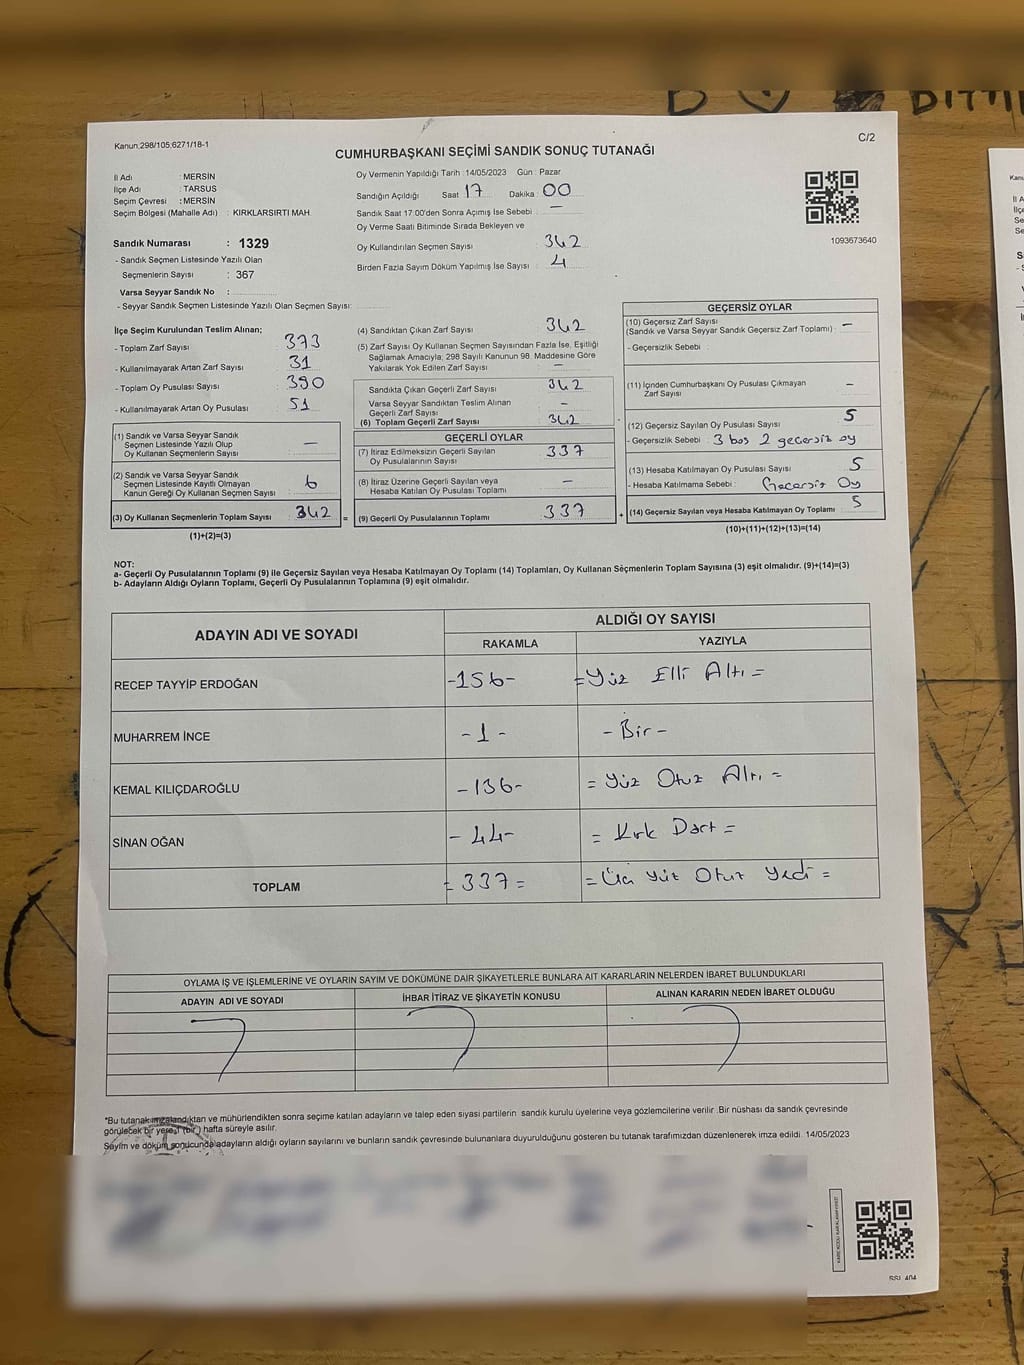 C/2
Kanun:298/105;6271/18-1
CUMHURBAŞKANI SEÇİMİ SANDIK SONUÇ TUTANAĞI
İl Adı : MERSİN
İlçe Adı : TARSUS
Seçim Çevresi : MERSİN
Seçim Bölgesi (Mahalle Adı) : KIRKLARSIRTI MAH.
Sandık Numarası : 1329
- Sandık Seçmen Listesinde Yazılı Olan
Seçmenlerin Sayısı : 367
Varsa Seyyar Sandık No :
- Seyyar Sandık Seçmen Listesinde Yazılı Olan Seçmen Sayısı:
Oy Vermenin Yapıldığı Tarih :14/05/2023 Gün : Pazar
Sandığın Açıldığı Saat 17 Dakika : 00
Sandık Saat 17:00'den Sonra Açımış İse Sebebi : —
Oy Verme Saati Bitiminde Sırada Bekleyen ve
Oy Kullandırılan Seçmen Sayısı : 342
Birden Fazla Sayım Döküm Yapılmış İse Sayısı : 4
1093673640
İlçe Seçim Kurulundan Teslim Alınan;
- Toplam Zarf Sayısı : 373
- Kullanılmayarak Artan Zarf Sayısı : 31
- Toplam Oy Pusulası Sayısı : 390
- Kullanılmayarak Artan Oy Pusulası : 51
(1) Sandık ve Varsa Seyyar Sandık
Seçmen Listesinde Yazılı Olup
Oy Kullanan Seçmenlerin Sayısı : —
(2) Sandık ve Varsa Seyyar Sandık
Seçmen Listesinde Kayıtlı Olmayan
Kanun Gereği Oy Kullanan Seçmen Sayısı : 6
(3) Oy Kullanan Seçmenlerin Toplam Sayısı : 342
(1)+(2)=(3)
(4) Sandıktan Çıkan Zarf Sayısı : 342
(5) Zarf Sayısı Oy Kullanan Seçmen Sayısından Fazla İse, Eşitliği
Sağlamak Amacıyla; 298 Sayılı Kanunun 98. Maddesine Göre
Yakılarak Yok Edilen Zarf Sayısı : —
Sandıkta Çıkan Geçerli Zarf Sayısı : 342
Varsa Seyyar Sandıktan Teslim Alınan
Geçerli Zarf Sayısı : —
(6) Toplam Geçerli Zarf Sayısı : 342
GEÇERLİ OYLAR
(7) İtiraz Edilmeksizin Geçerli Sayılan
Oy Pusulalarının Sayısı : 337
(8) İtiraz Üzerine Geçerli Sayılan veya
Hesaba Katılan Oy Pusulaları Toplamı : —
(9) Geçerli Oy Pusulalarının Toplamı : 337
GEÇERSİZ OYLAR
(10) Geçersiz Zarf Sayısı
(Sandık ve Varsa Seyyar Sandık Geçersiz Zarf Toplamı) : —
- Geçersizlik Sebebi :
(11) İçinden Cumhurbaşkanı Oy Pusulası Çıkmayan
Zarf Sayısı : —
(12) Geçersiz Sayılan Oy Pusulası Sayısı : 5
- Geçersizlik Sebebi : 3 boş 2 geçersiz oy
(13) Hesaba Katılmayan Oy Pusulası Sayısı : 5
- Hesaba Katılmama Sebebi : Gecersiz Oy
(14) Geçersiz Sayılan veya Hesaba Katılmayan Oy Toplamı : 5
(10)+(11)+(12)+(13)=(14)
NOT:
a- Geçerli Oy Pusulalarının Toplamı (9) ile Geçersiz Sayılan veya Hesaba Katılmayan Oy Toplamı (14) Toplamları, Oy Kullanan Seçmenlerin Toplam Sayısına (3) eşit olmalıdır. (9)+(14)=(3)
b- Adayların Aldığı Oyların Toplamı, Geçerli Oy Pusulalarının Toplamına (9) eşit olmalıdır.
ADAYIN ADI VE SOYADI
ALDIĞI OY SAYISI
RAKAMLA YAZIYLA
RECEP TAYYİP ERDOĞAN -156- =Yüz Elli Altı=
MUHARREM İNCE -1- -Bir-
KEMAL KILIÇDAROĞLU -136- =Yüz Otuz Altı=
SİNAN OĞAN -44- =Kırk Dört=
TOPLAM =337= =Üç Yüz Otuz Yedi=
OYLAMA İŞ VE İŞLEMLERİNE VE OYLARIN SAYIM VE DÖKÜMÜNE DAİR ŞİKAYETLERLE BUNLARA AİT KARARLARIN NELERDEN İBARET BULUNDUKLARI
ADAYIN ADI VE SOYADI İHBAR İTİRAZ VE ŞİKAYETİN KONUSU ALINAN KARARIN NEDEN İBARET OLDUĞU
*Bu tutanak imzalandıktan ve mühürlendikten sonra seçime katılan adayların ve talep eden siyasi partilerin sandık kurulu üyelerine veya gözlemcilerine verilir. Bir nüshası da sandık çevresinde
görülecek bir yere 1 (bir) hafta süreyle asılır.
Sayım ve döküm sonucunda adayların aldığı oyların sayılarını ve bunların sandık çevresinde bulunanlara duyurulduğunu gösteren bu tutanak tarafımızdan düzenlenerek imza edildi. 14/05/2023